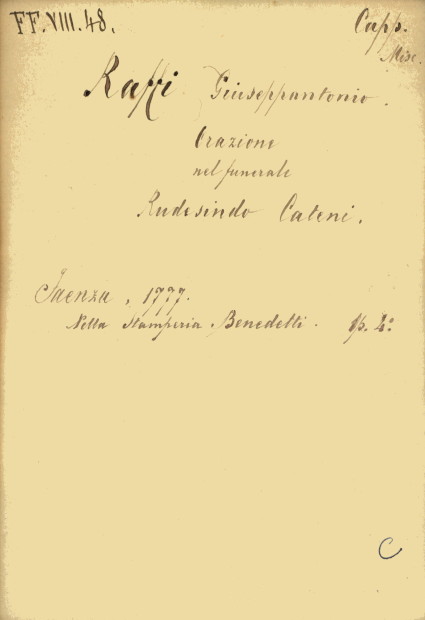 FF.VIII.48.
Capp.
Misc.
Raffi Giuseppantonio.
Orazione
nel funerale
Rudesindo Cateni.
Faenza, 1777.
Nella Stamperia Benedetti. 4º
C